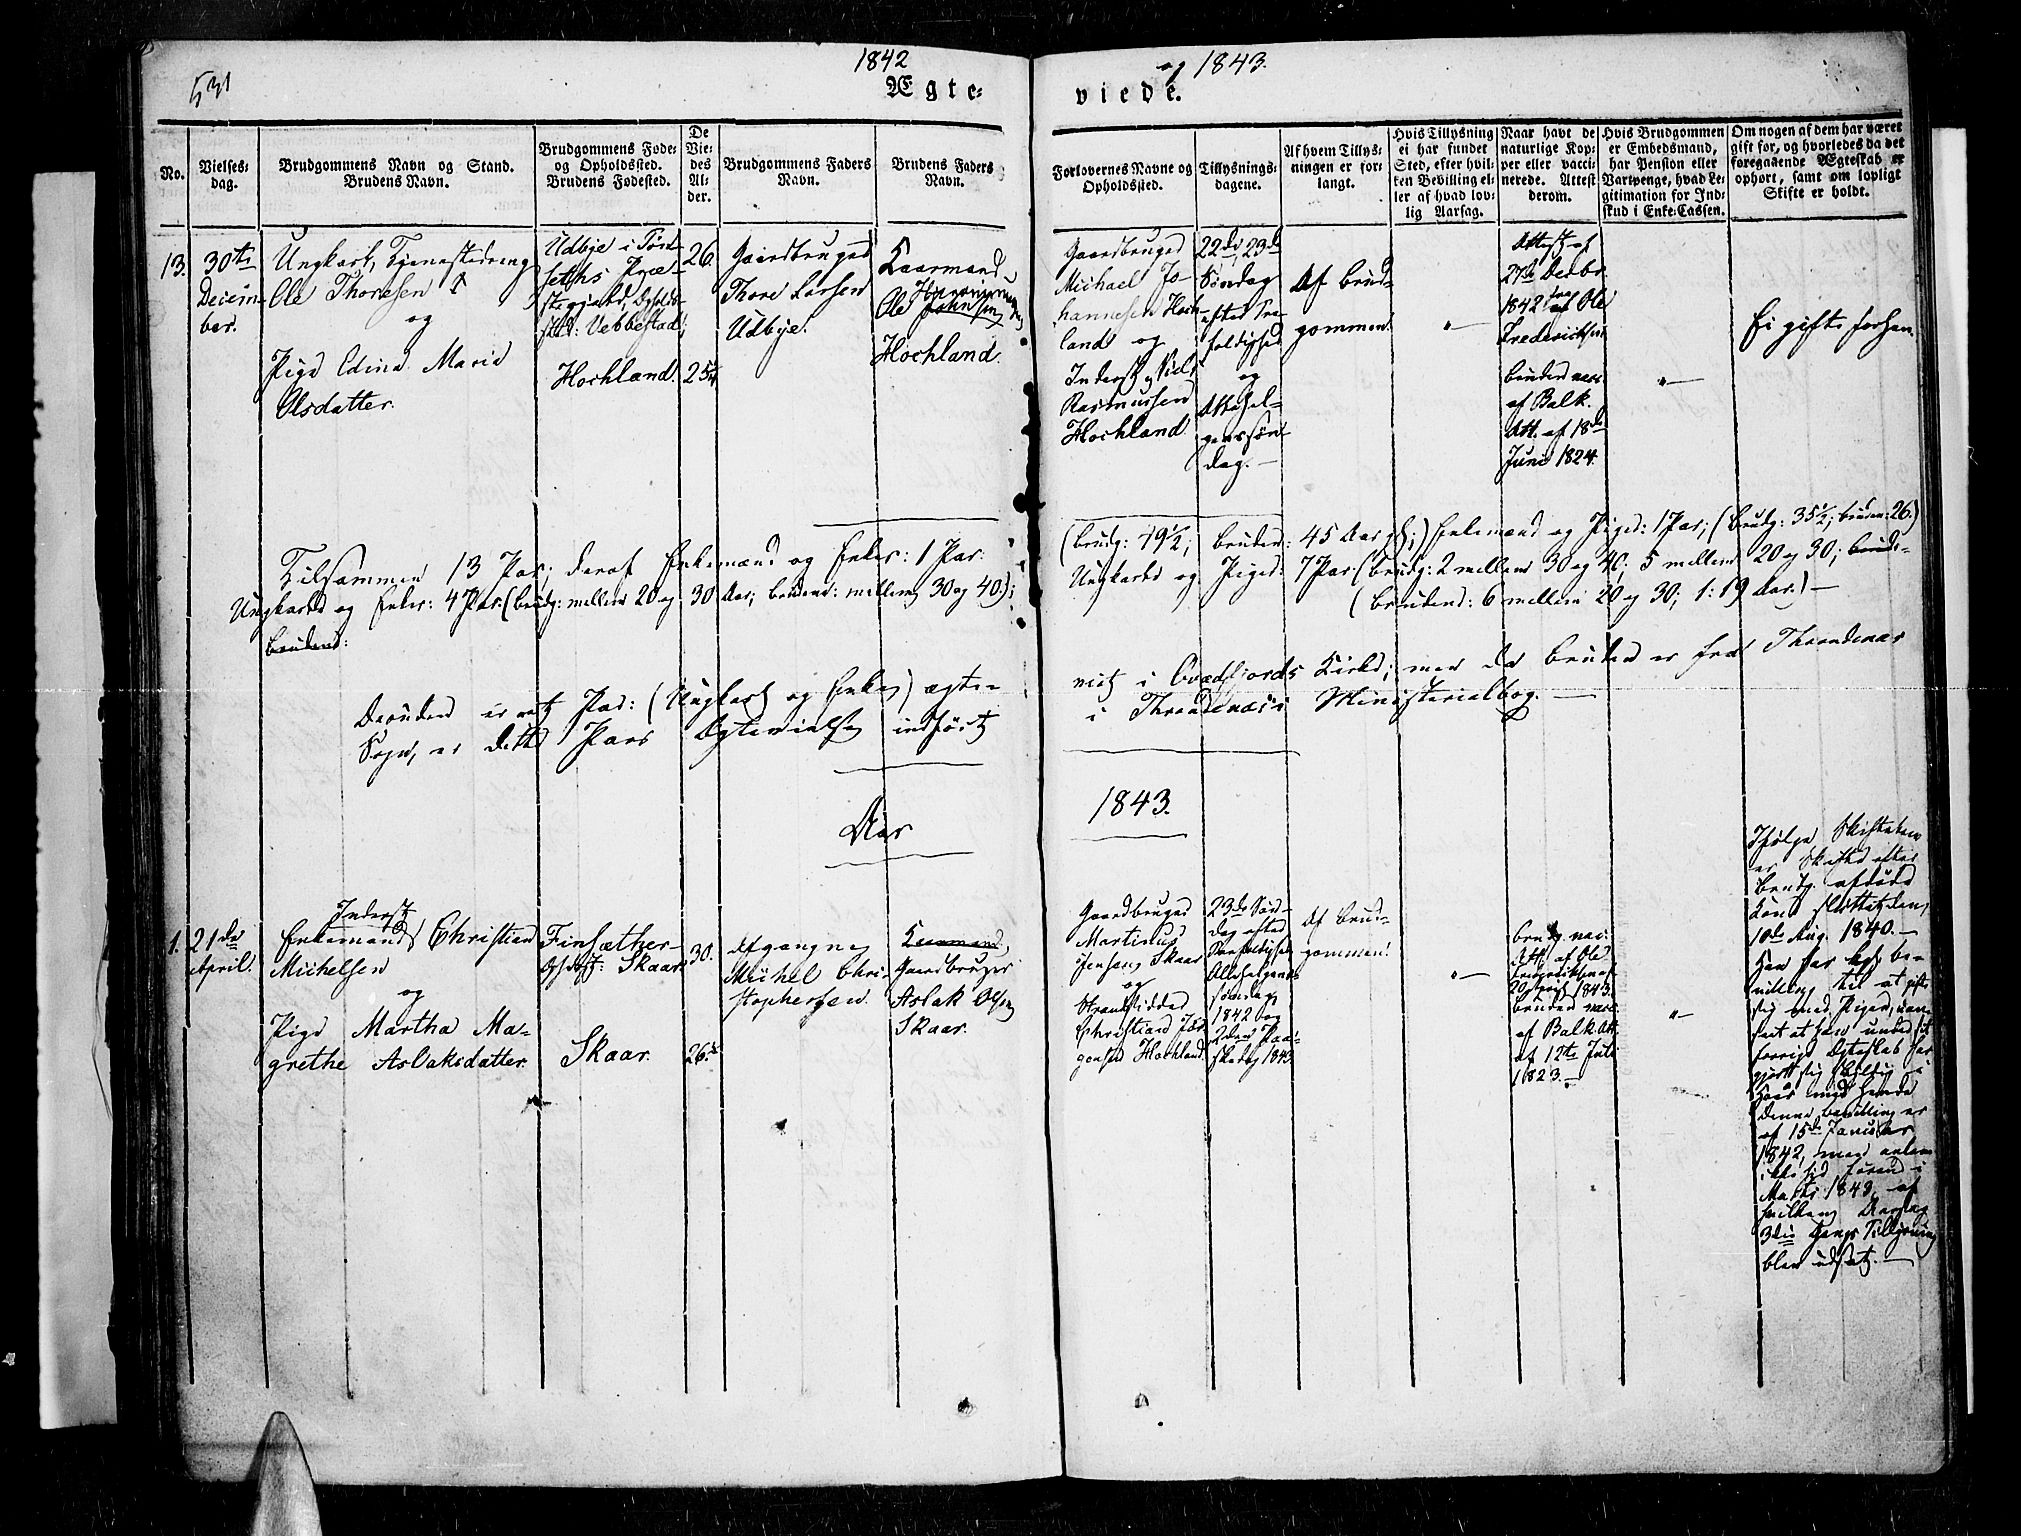 531
1842
og 1843.
Ægte-
viede.
No.
Vielses-
dag.
Brudgommens Navn og Stand.
Brudens Navn.
Brudgommens Føde-
og Opholdssted.
Brudens Fødested.
De
Vie-
des
Al-
der.
Brudgommens Faders
Navn.
Brudens Faders
Navn.
Forlovernes Navne og
Opholdssted.
Tillysnings-
dagene.
Af hvem Tillys-
ningen er for-
langt.
Hvis Tillysning
ei har fundet
Sted, efter hvil-
ken Bevilling el-
ler af hvad lov-
lig Aarsag.
Naar havt de
naturlige Kop-
per eller vacci-
nerede. Attest
derom.
Hvis Brudgommen
er Embedsmand,
har Pension eller
Vartpenge, hvad Le-
gitimation for Ind-
skud i Enke-Cassen.
Om nogen af dem har været
gift før, og hvorledes da det
foregaaende Ægteskab er
ophørt, samt om lovligt
Skifte er holdt.
13.
30te
Decem-
ber.
Ungkarl, Tjenestedreng
Ole Thoresen
og
Pige Edina Maria
Olsdatter.
Udbye i
Præ-
stegjæld,
sted: Vebbestad;
Hochland.
26.
25
Gaardbruger
Thore Larsen
Udbye.
Huusmand
Ole
Hochland.
Gaardbruger
Michael Jo-
hannesen Hoch-
land og
Inderst Niels
Rasmussen
Hochland
22de, 23de
Søndag
efter Tre-
foldighed
og
Allehel-
genssøn-
dag.—
Af Brud-
gommen.
"—
Attest af
27de Decbr.
1842 fra Ole
Frederichsen
Bruden vacc.
af Balk.
Att. af 18de
Juni 1824.
"—
Ei gifte forhen.
Tilsammen 13 Par; deraf Enkemænd og Enker: 1 Par.
(Brudg: 49½; Bruden: 45 Aar gl.;) Enkemand og Piger: 1 Par; (Brudg: 35½; Bruden: 26.)
Ungkarle og Enker: 4 Par (Brudg: mellem 20 og 30 Aar; Brudene: mellem 30 og 40.);
Ungkarle og Piger: 7 Par (Brudg: 2 mellem 30 og 40; 5 mellem 20 og 30; Brude-
Brudene:
(Brudene: 6 mellem 20 og 30; 1: 19 Aar.)—
Desuden er et Par: (Ungkarl og Enke) ægte-
viet i Qvædfjords Kirke; men da Bruden er fra Throndenæs
Sogn, er dette Pars Ægtevielse indført
i Throndenæs's Ministerialbog.—
Aar
1843.
1.
21de
April.
Inderst
Enkemand Christian
Michelsen
og
Pige Martha Ma-
grethe Aslaksdatter.
Finsæther-
Opholdst: Skaar
Skaar.
30.
26
Afgangne
Michel Chri-
stophersen.
Huusmand,
Gaardbruger
Aslak Olsen
Skaar.
Gaardbruger
Martinus
Jensen Skaar
og
Strandsidder
Christian Jør-
gensen Hochland.
23de Søn-
dag efter
Trefoldighed
Allehelgens-
søndag
1842 og
2den Paa-
skedag 1843.
Af Brud-
gommen.
"—
Brudg. vacc:
Att: af Ole
Frederiksen af
20 April 1843.
Bruden vacc.
af Balk Att.
af 12te Juli
1823.—
"—
Ifølge Skifteretten
er Skifte efter
Brudg. afdøde
Kone sluttet den
10de Aug. 1840.—
Han har be-
villing til at gifte
sig med Pigen, uan-
seet at han under sit
forrige Ægteskab har
gjort sig skyldig i
Hoer med hende
denne bevilling er
af 15de Januar
1842, men ankom
ikke hid førend i
Marts 1843, af
hvilken Aarsag
3die Gangs Tillysning
blev udsat.—